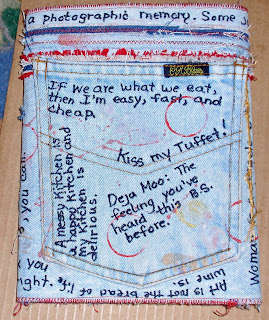 a photographic memory. Some
If we are what we eat,
then I'm easy, fast, and
cheap.
Kiss my Tuffet!
Deja Moo: The
feeling you've
heard this B.S.
before.
A messy kitchen is
a happy kitchen and
my kitchen is
delirious.
you can.
Woma
Art is not the bread of life
wine is.
you
ght.